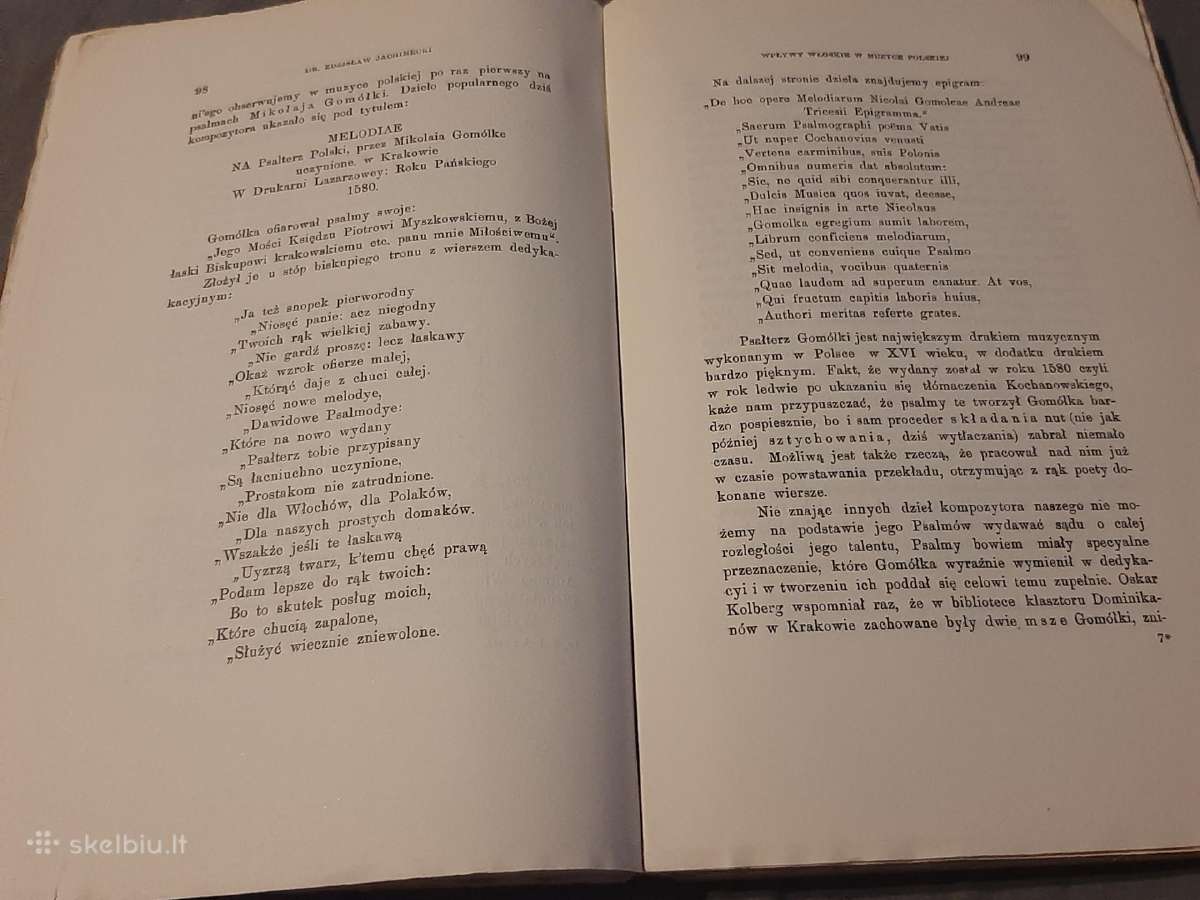 98
DR. ZDZISŁAW JACHIMECKI
ni'ego obserwujemy w muzyce polskiej po raz pierwszy na
psalmach Mikołaja Gomółki. Dzieło popularnego dziś
kompozytora ukazało się pod tytułem:
MELODIAE
NA Psałterz Polski, przez Mikolaia Gomólke
uczynione. w Krakowie
W Drukarni Lazarzowey: Roku Pańskiego
1580.
Gomółka ofiarował psalmy swoje:
„Jego Mości Księdzu Piotrowi Myszkowskiemu, z Bożej
łaski Biskupowi krakowskiemu etc. panu mnie Miłościwemu“.
Złożył je u stóp biskupiego tronu z wierszem dedyka-
kacyjnym:
„Ja też snopek pierworodny
„Niosęć panie: acz niegodny
„Twoich rąk wielkiej zabawy.
„Nie gardź proszę: lecz łaskawy
„Okaż wzrok ofierze małej,
„Którąć daje z chuci całej.
„Niosęć nowe melodye,
„Dawidowe Psalmodye:
„Które na nowo wydany
„Psałterz tobie przypisany
„Są łacniuchno uczynione,
„Prostakom nie zatrudnione.
„Nie dla Włochów, dla Polaków,
„Dla naszych prostych domaków.
„Wszakże jeśli te łaskawą
„Uyzrzą twarz, k'temu chęć prawą
„Podam lepsze do rąk twoich:
Bo to skutek posług moich,
„Które chucią zapalone,
„Służyć wiecznie zniewolone.
WPŁYWY WŁOSKIE W MUZYCE POLSKIEJ
99
Na dalszej stronie dzieła znajdujemy epigram:
„De hoc opere Melodiarum Nicolai Gomolcae Andreae
Tricesii Epigramma.“
„Sacrum Psalmographi poëma Vatis
„Ut nuper Cochanovius venusti
„Vertens carminibus, suis Polonis
„Omnibus numeris dat absolutum:
„Sic, ne quid sibi conquerantur illi,
„Dulcis Musica quos iuvat, deesse,
„Hac insignis in arte Nicolaus
„Gomolka egregium sumit laborem,
„Librum conficiens melodiarum,
„Sed, ut conveniens cuique Psalmo
„Sit melodia, vocibus quaternis
„Quae laudem ad superum canatur. At vos,
„Qui fructum capitis laboris huius,
„Authori meritas referte grates.
Psałterz Gomółki jest największym drukiem muzycznym
wykonanym w Polsce w XVI wieku, w dodatku drukiem
bardzo pięknym. Fakt, że wydany został w roku 1580 czyli
w rok ledwie po ukazaniu się tłómaczenia Kochanowskiego,
każe nam przypuszczać, że psalmy te tworzył Gomółka bar-
dzo pospiesznie, bo i sam proceder składania nut (nie jak
później sztychowania, dziś wytłaczania) zabrał niemało
czasu. Możliwą jest także rzeczą, że pracował nad nim już
w czasie powstawania przekładu, otrzymując z rąk poety do-
konane wiersze.
Nie znając innych dzieł kompozytora naszego nie mo-
żemy na podstawie jego Psalmów wydawać sądu o całej
rozległości jego talentu, Psalmy bowiem miały specyalne
przeznaczenie, które Gomółka wyraźnie wymienił w dedyka-
cyi i w tworzeniu ich poddał się celowi temu zupełnie. Oskar
Kolberg wspomniał raz, że w bibliotece klasztoru Dominika-
nów w Krakowie zachowane były dwie msze Gomółki, zni-
7*
skelbiu.lt